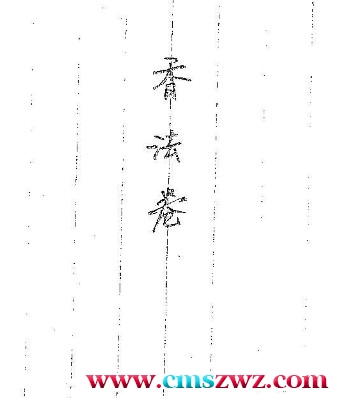 香法卷
www.cmszwz.com